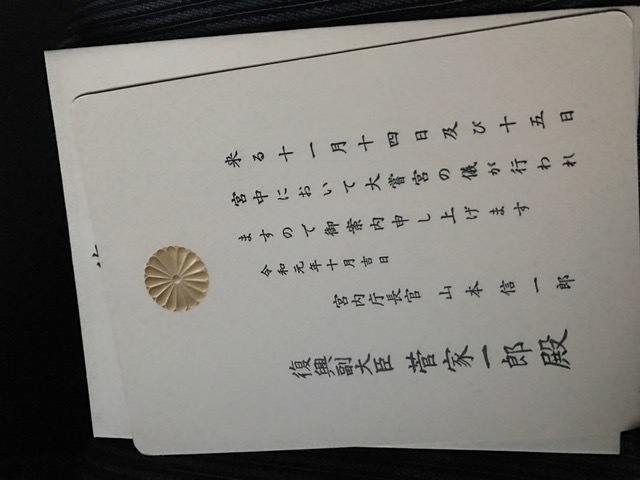 来る十一月十四日及び十五日
宮中において大嘗宮の儀が行われ
ますので御案内申し上げます
令和元年十月吉日
宮内庁長官 山本信一郎
復興副大臣 菅家一郎殿